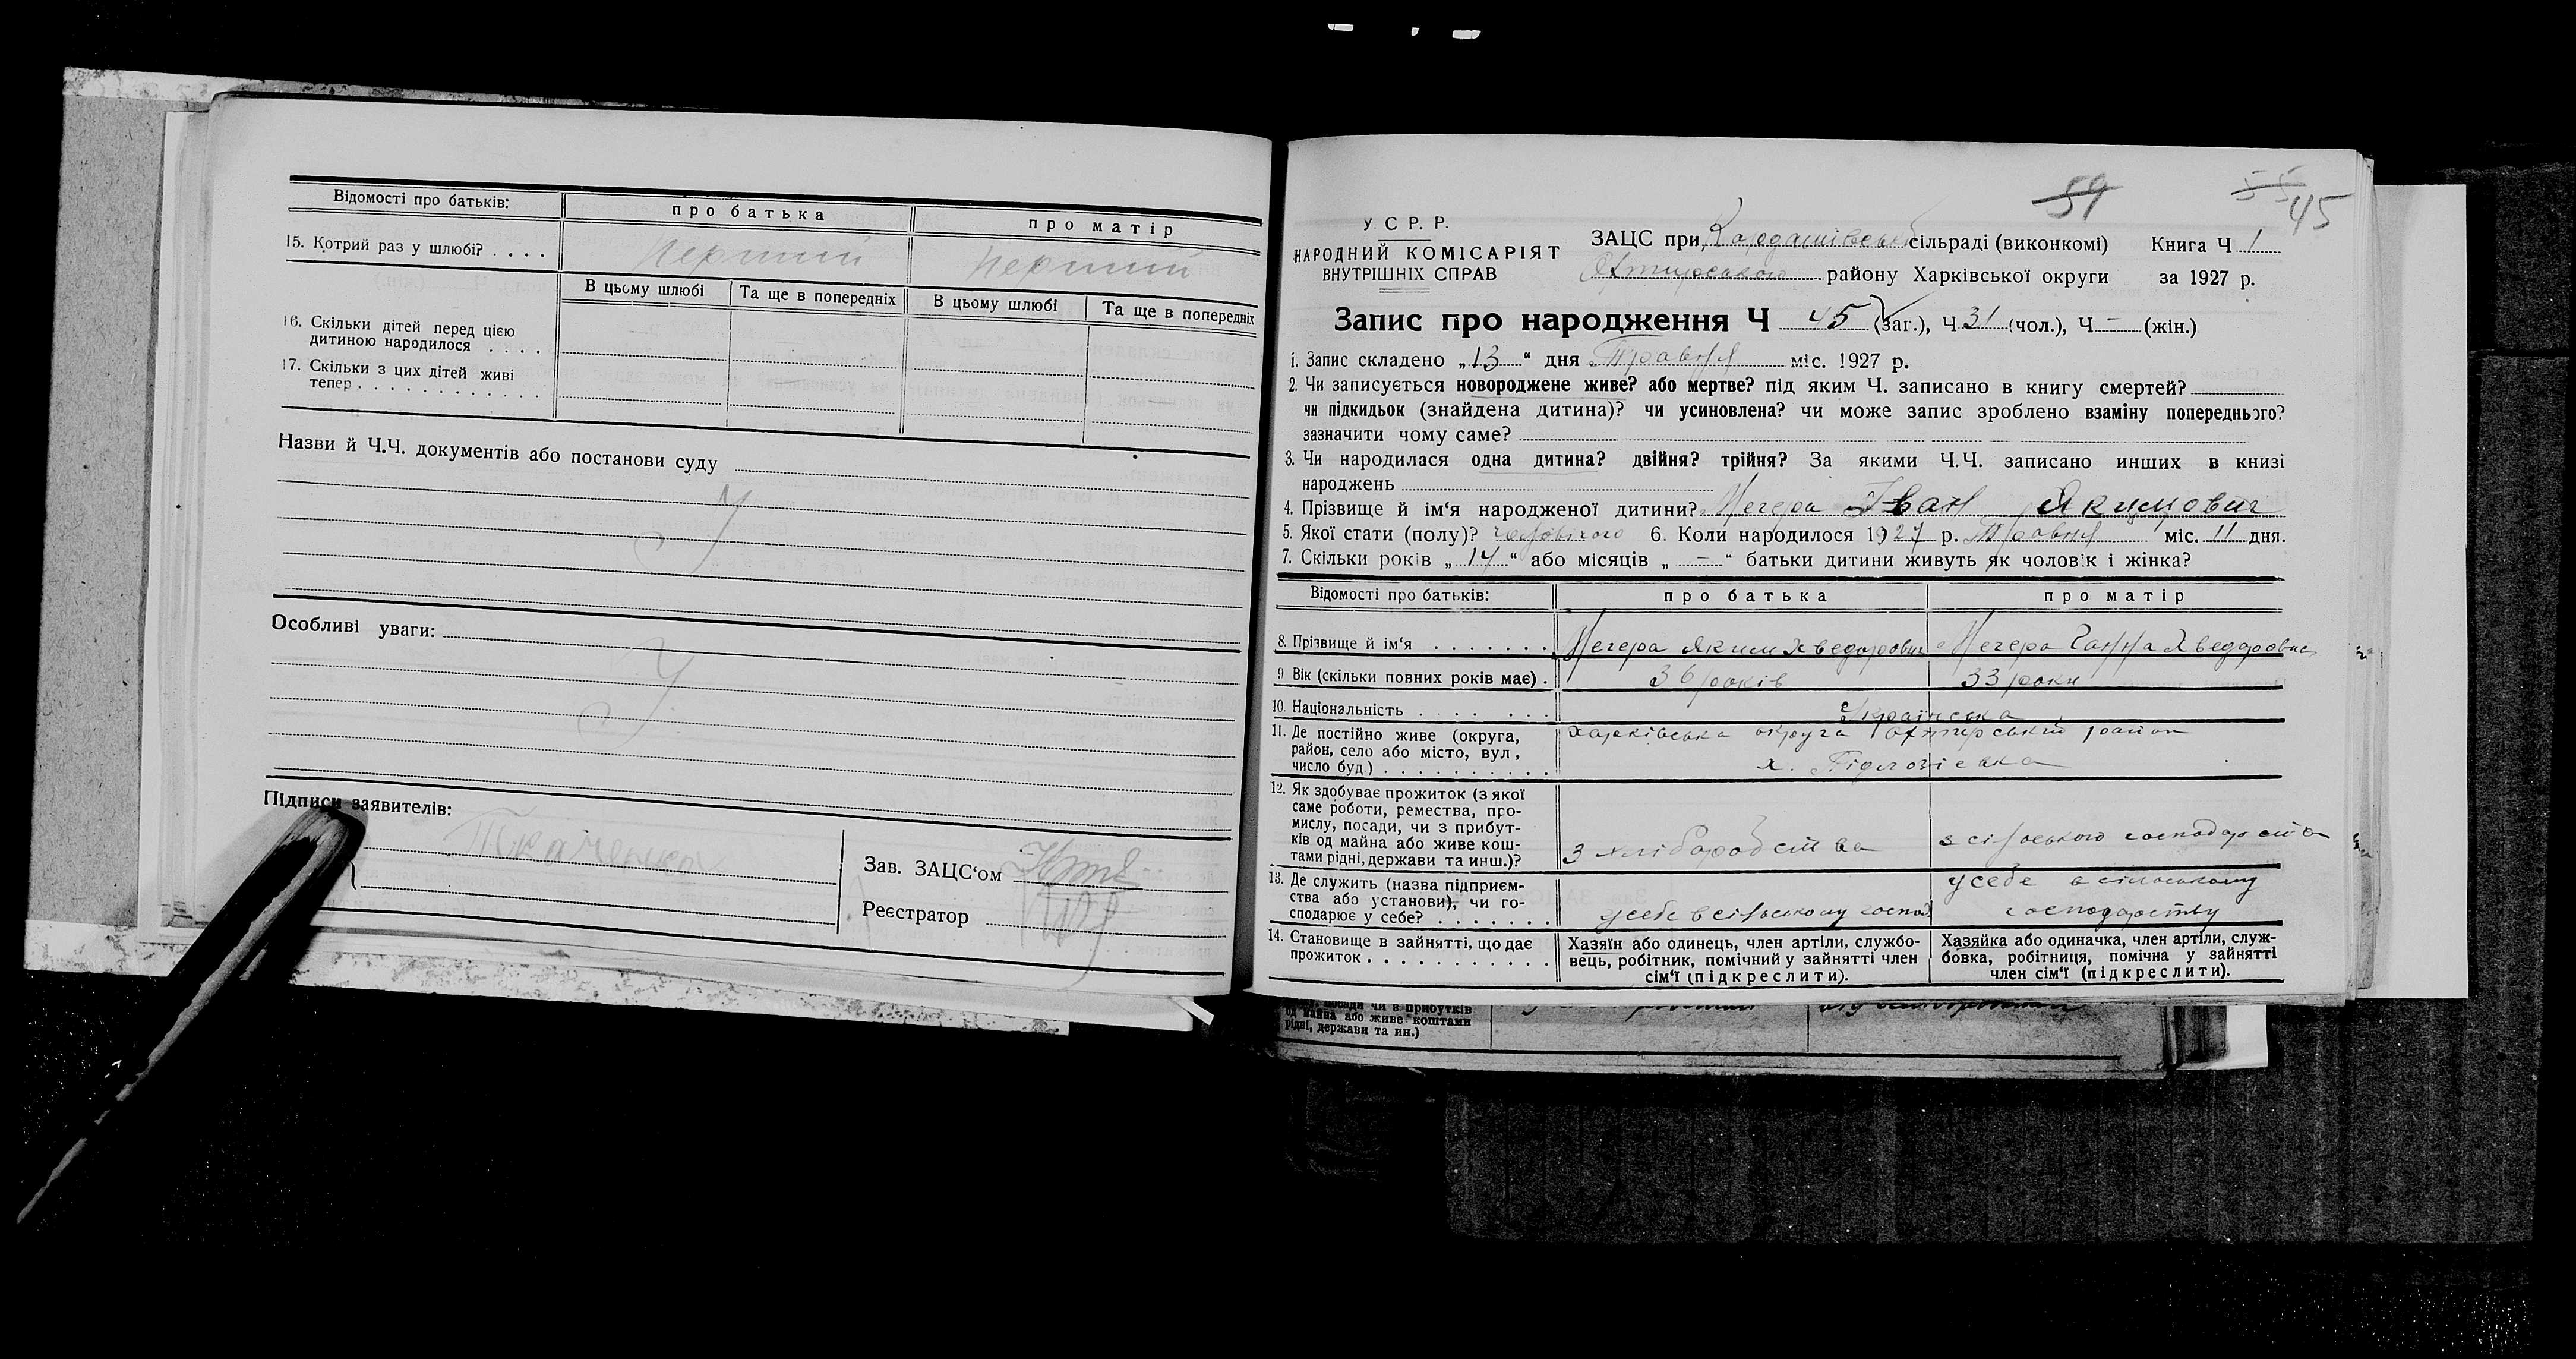 Відомості про батьків: про батька про матір
15. Котрий раз у шлюбі? . . . . перший перший
В цьому шлюбі Та ще в попередніх В цьому шлюбі Та ще в попередніх
16. Скільки дітей перед цією
дитиною народилося . . . .
17. Скільки з цих дітей живі
тепер . . . . . . . . . . . .
Назви й Ч.Ч. документів або постанови суду
Особливі уваги:
Підписи заявителів:
Ткаченко
Зав. ЗАЦС‘ом
Реєстратор
59 55 45
У. С. Р. Р.
НАРОДНИЙ КОМІСАРІЯТ
ВНУТРІШНІХ СПРАВ
ЗАЦС при Кардашівськ сільраді (виконкомі) Книга Ч 1
Охтирського району Харківської округи за 1927 р.
Запис про народження Ч 45 (заг.), Ч 31 (чол.), Ч - (жін.)
1. Запис складено „13“ дня Травня міс. 1927 р.
2. Чи записується новороджене живе? або мертве? під яким Ч. записано в книгу смертей?
чи підкидьок (знайдена дитина)? чи усиновлена? чи може запис зроблено взаміну попереднього?
зазначити чому саме?
3. Чи народилася одна дитина? двійня? трійня? За якими Ч.Ч. записано инших в книзі
народжень
4. Прізвище й ім‘я народженої дитини? Мегера Іван Якимович
5. Якої стати (полу)? чоловічого 6. Коли народилося 1927 р. Травня міс. 11 дня.
7. Скільки років „14“ або місяців „-“ батьки дитини живуть як чоловік і жінка?
Відомості про батьків: про батька про матір
8. Прізвище й ім‘я . . . . . . . Мегера Яким Хведорович Мегера Ганна Хведоровна
9 Вік (скільки повних років має) . 36 років 33 роки
10. Національність . . . . . . . Українська
11. Де постійно живе (округа,
район, село або місто, вул.,
число буд.) . . . . . . . . . .
Харківська округа Охтирський район
х.
12. Як здобуває прожиток (з якої
саме роботи, ремества, про-
мислу, посади, чи з прибут-
ків од майна або живе кош-
тами рідні, держави та инш.)?
з хліборобства з сільського господарства
13. Де служить (назва підприєм-
ства або установи), чи го-
сподарює у себе? . . . . . . .
у себе в сільському господ.
у себе в сільському
господарству
14. Становище в зайнятті, що дає
прожиток . . . . . . . . . . .
Хазяїн або одинець, член артіли, службо-
вець, робітник, помічний у зайнятті член
сім‘ї (підкреслити).
Хазяйка або одиначка, член артіли, служ-
бовка, робітниця, помічна у зайнятті
член сім‘ї (підкреслити).
посади чи в прибутків
од майна або живе коштами
рідні, держави та ин.)